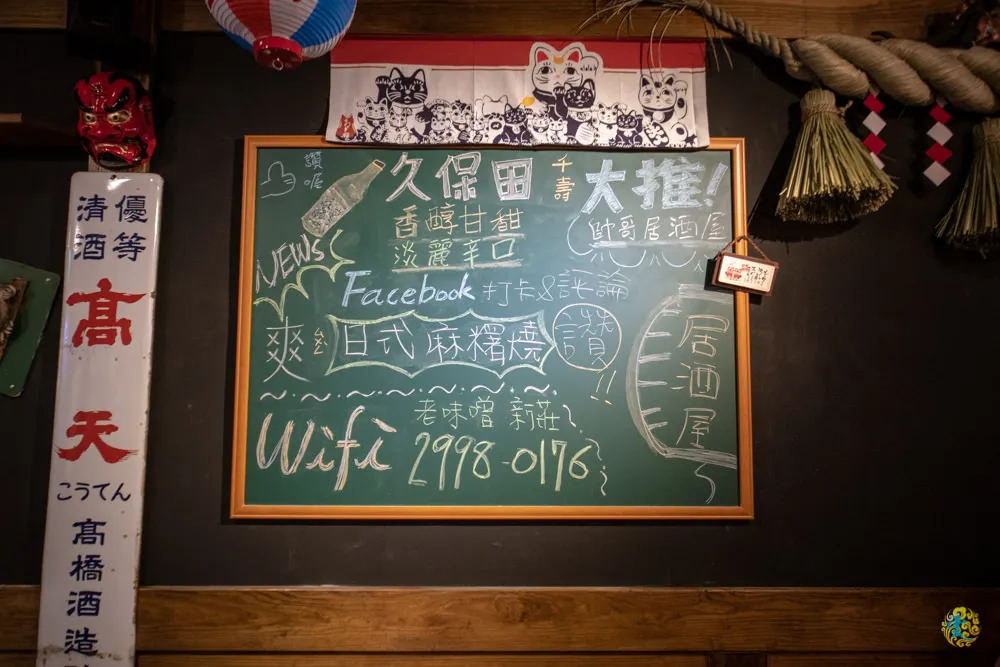 優等
清酒
高天
こうてん
高橋酒造
讚喔
久保田
千壽
大推!
香醇甘甜
淡麗辛口
帥哥居酒屋
NEWS
Facebook 打卡&評論
爽 日式麻糬燒 讚!!
居酒屋
Wifi
老味噌 新莊
2998-0176